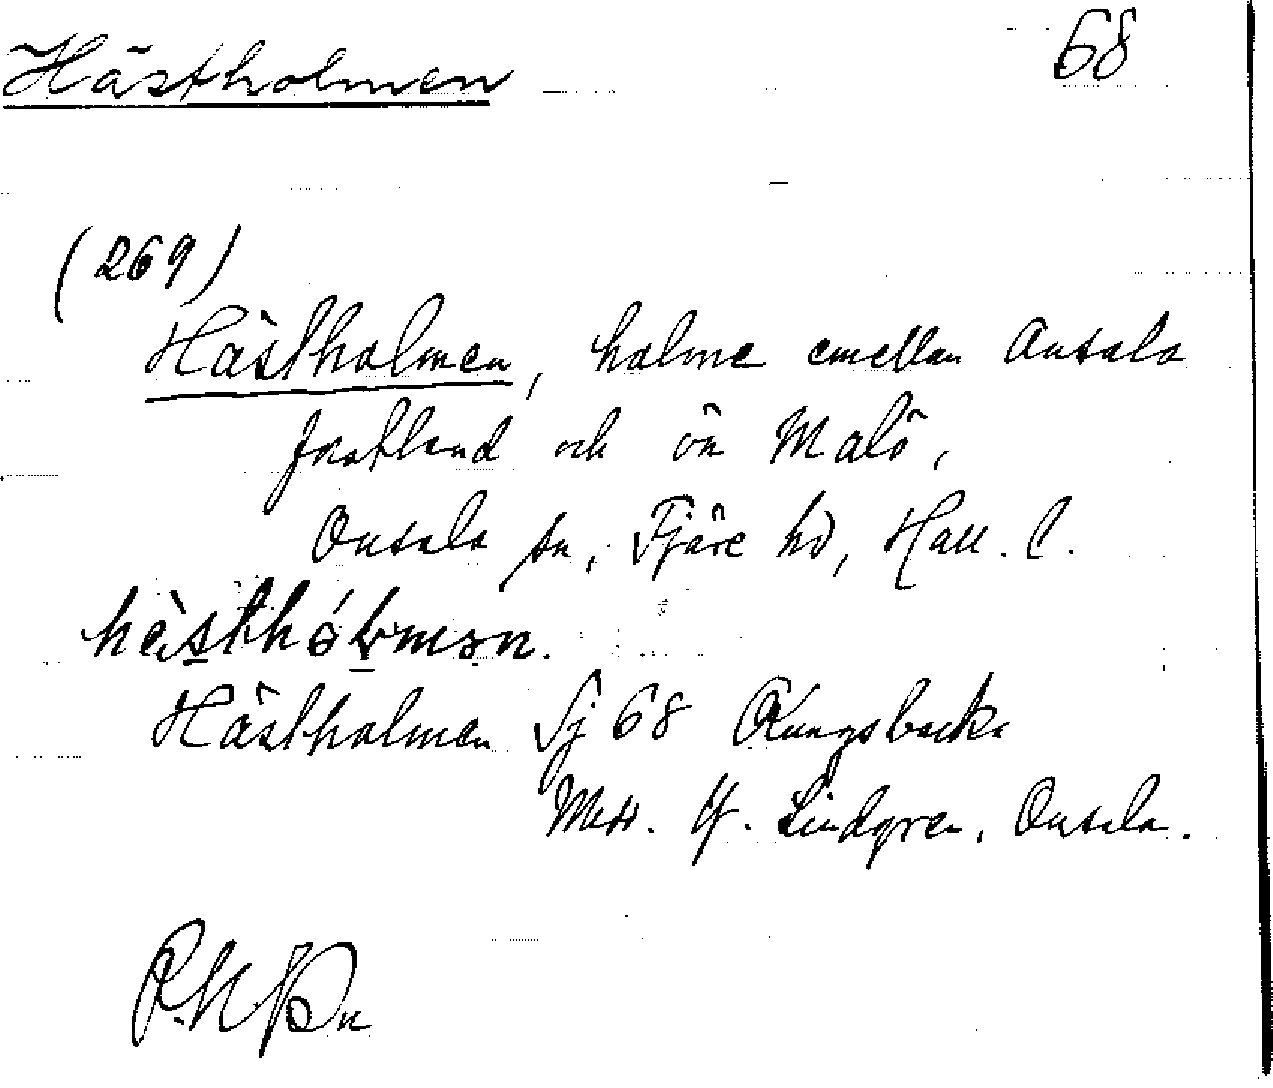 Hästholmen 68
(269)
Hästholmen, holme emellan Onsala
fastland och ön Malö,
Onsala sn, Fjäre hd, Hall. l.
hèsthólmən.
Hästholmen Sj 68 Kungsbacka
Medd. Lindgren, Onsala.